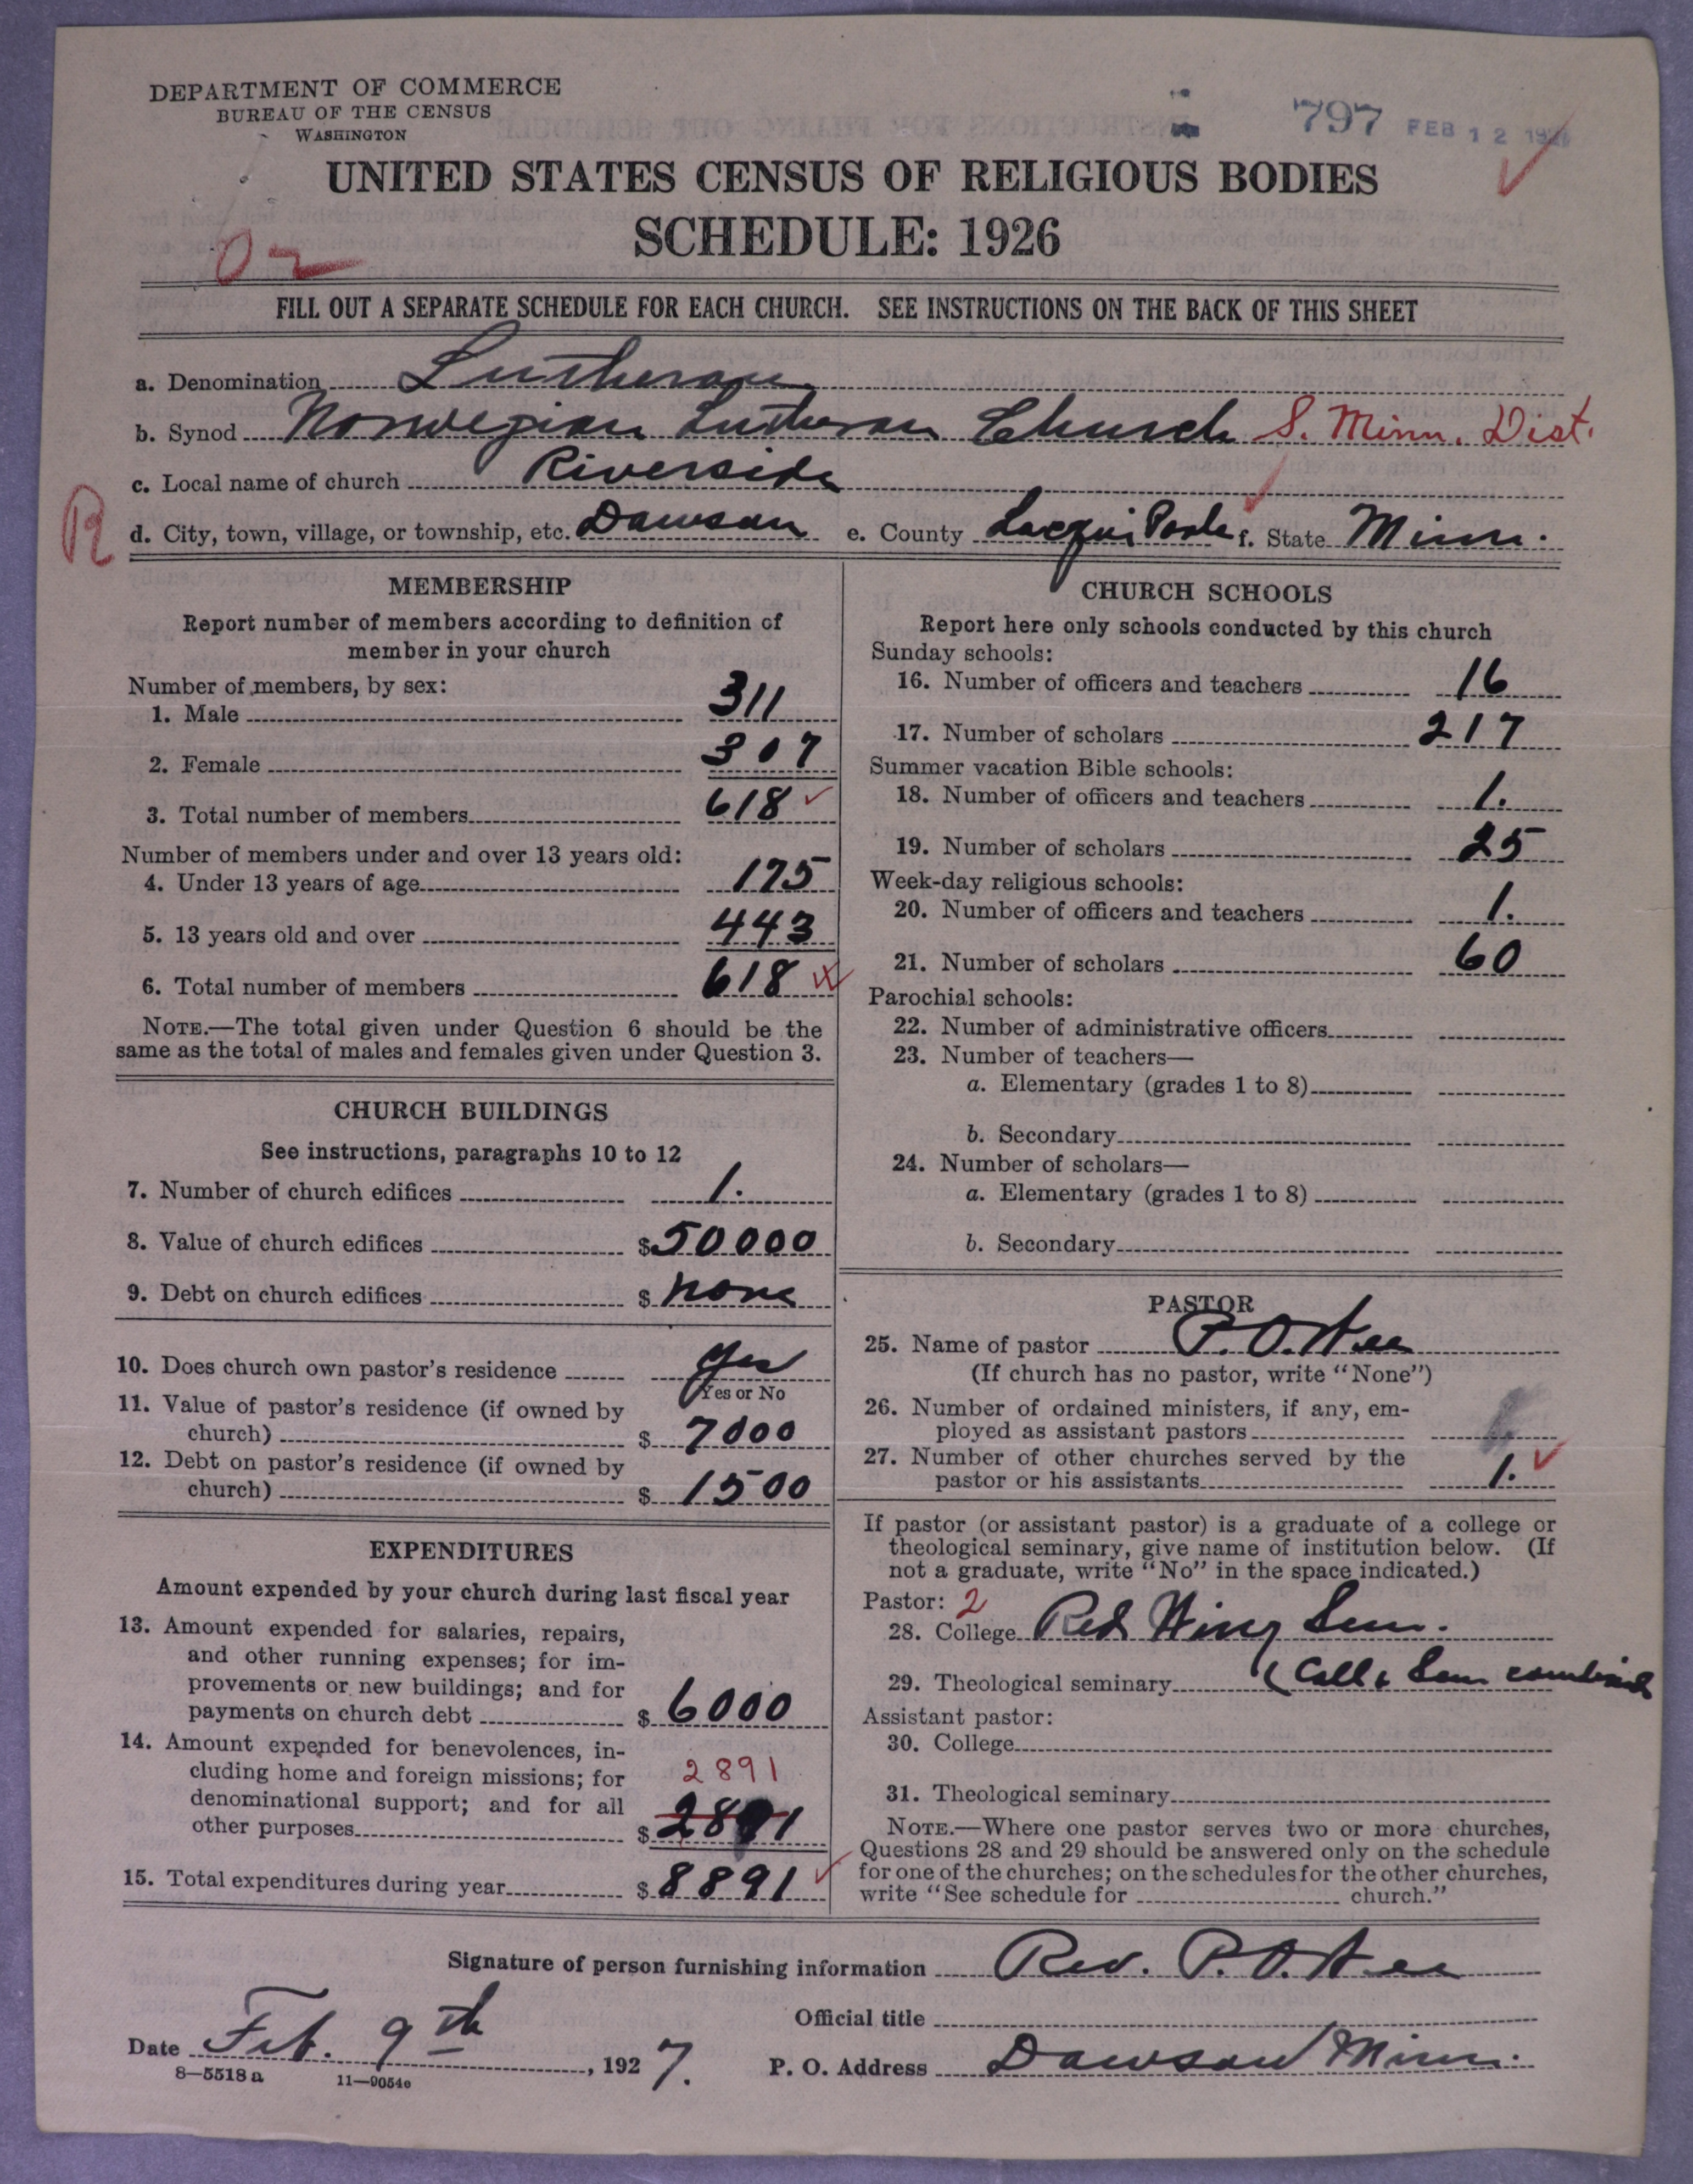 DEPARTMENT OF COMMERCE
BUREAU OF THE CENSUS
WASHINGTON
797 FEB 12 192
UNITED STATES CENSUS OF RELIGIOUS BODIES
SCHEDULE: 1926
02
FILL OUT A SEPARATE SCHEDULE FOR EACH CHURCH. SEE INSTRUCTIONS ON THE BACK OF THIS SHEET
a. Denomination Lutheran
b. Synod Norwegian Lutheran Church S. Minn. Dist.
c. Local name of church Riverside
R
d. City, town, village, or township, etc. Dawson e. County Lacqui Parle f. State Minn.
MEMBERSHIP
Report number of members according to definition of
member in your church
Number of members, by sex:
1. Male 311
2. Female 307
3. Total number of members 618
Number of members under and over 13 years old:
4. Under 13 years of age 175
5. 13 years old and over 443
6. Total number of members 618
NOTE.—The total given under Question 6 should be the
same as the total of males and females given under Question 3.
CHURCH BUILDINGS
See instructions, paragraphs 10 to 12
7. Number of church edifices 1.
8. Value of church edifices $50000
9. Debt on church edifices $ none
10. Does church own pastor's residence yes
Yes or No
11. Value of pastor's residence (if owned by
church) $ 7000
12. Debt on pastor's residence (if owned by
church) $ 1500
EXPENDITURES
Amount expended by your church during last fiscal year
13. Amount expended for salaries, repairs,
and other running expenses; for im-
provements or new buildings; and for
payments on church debt $ 6000
14. Amount expended for benevolences, in-
cluding home and foreign missions; for 2891
denominational support; and for all
other purposes $ 2891
15. Total expenditures during year $ 8891
CHURCH SCHOOLS
Report here only schools conducted by this church
Sunday schools:
16. Number of officers and teachers 16
17. Number of scholars 217
Summer vacation Bible schools:
18. Number of officers and teachers 1.
19. Number of scholars 25
Week-day religious schools:
20. Number of officers and teachers 1.
21. Number of scholars 60
Parochial schools:
22. Number of administrative officers
23. Number of teachers—
a. Elementary (grades 1 to 8)
b. Secondary
24. Number of scholars—
a. Elementary (grades 1 to 8)
b. Secondary
PASTOR
25. Name of pastor P. O. Hee
(If church has no pastor, write "None")
26. Number of ordained ministers, if any, em-
ployed as assistant pastors
27. Number of other churches served by the
pastor or his assistants 1.
If pastor (or assistant pastor) is a graduate of a college or
theological seminary, give name of institution below. (If
not a graduate, write "No" in the space indicated.)
Pastor: 2
28. College Red Wing Sem.
29. Theological seminary (Coll & Sem combined
Assistant pastor:
30. College
31. Theological seminary
NOTE.—Where one pastor serves two or more churches,
Questions 28 and 29 should be answered only on the schedule
for one of the churches; on the schedules for the other churches,
write "See schedule for church."
Signature of person furnishing information Rev. P. O. Hee
Official title
Date Feb. 9th, 1927.
P. O. Address Dawson Minn.
8—5518a 11—9054e